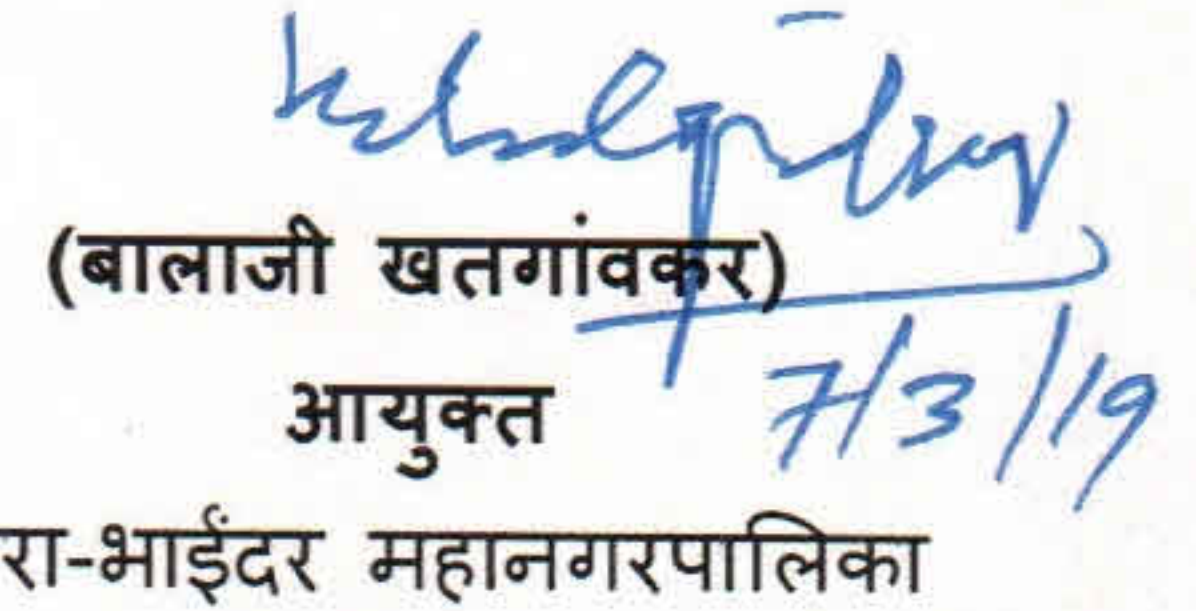 (बालाजी खतगांवकर)
7/3/19
आयुक्त
रा-भाईंदर महानगरपालिका